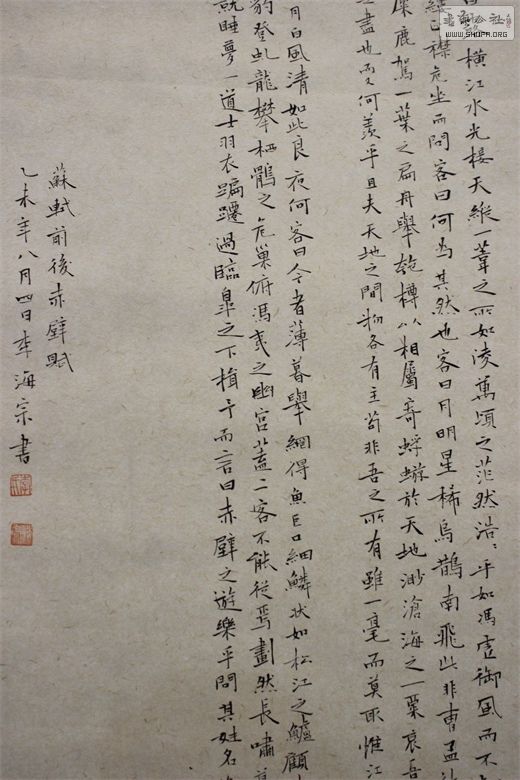 书法公社
WWW.SHUFA.ORG
横江水光接天縱一葦之所如凌萬頃之茫然浩〻乎如馮虛御風而不
正襟危坐而問客曰何為其然也客曰月明星稀烏鵲南飛此非曹孟
麋鹿駕一葉之扁舟舉匏樽以相屬寄蜉蝣於天地渺滄海之一粟哀吾
盡也而又何羨乎且夫天地之間物各有主苟非吾之所有雖一毫而莫取惟江
月白風清如此良夜何客曰今者薄暮舉網得魚巨口細鱗狀如松江之鱸顧
豹登虬龍攀栖鶻之危巢俯馮夷之幽宮蓋二客不能從焉劃然長嘯草
就睡夢一道士羽衣蹁躚過臨臯之下揖予而言曰赤壁之遊樂乎問其姓名
蘇軾前後赤壁賦
乙未年八月四日李海宗書